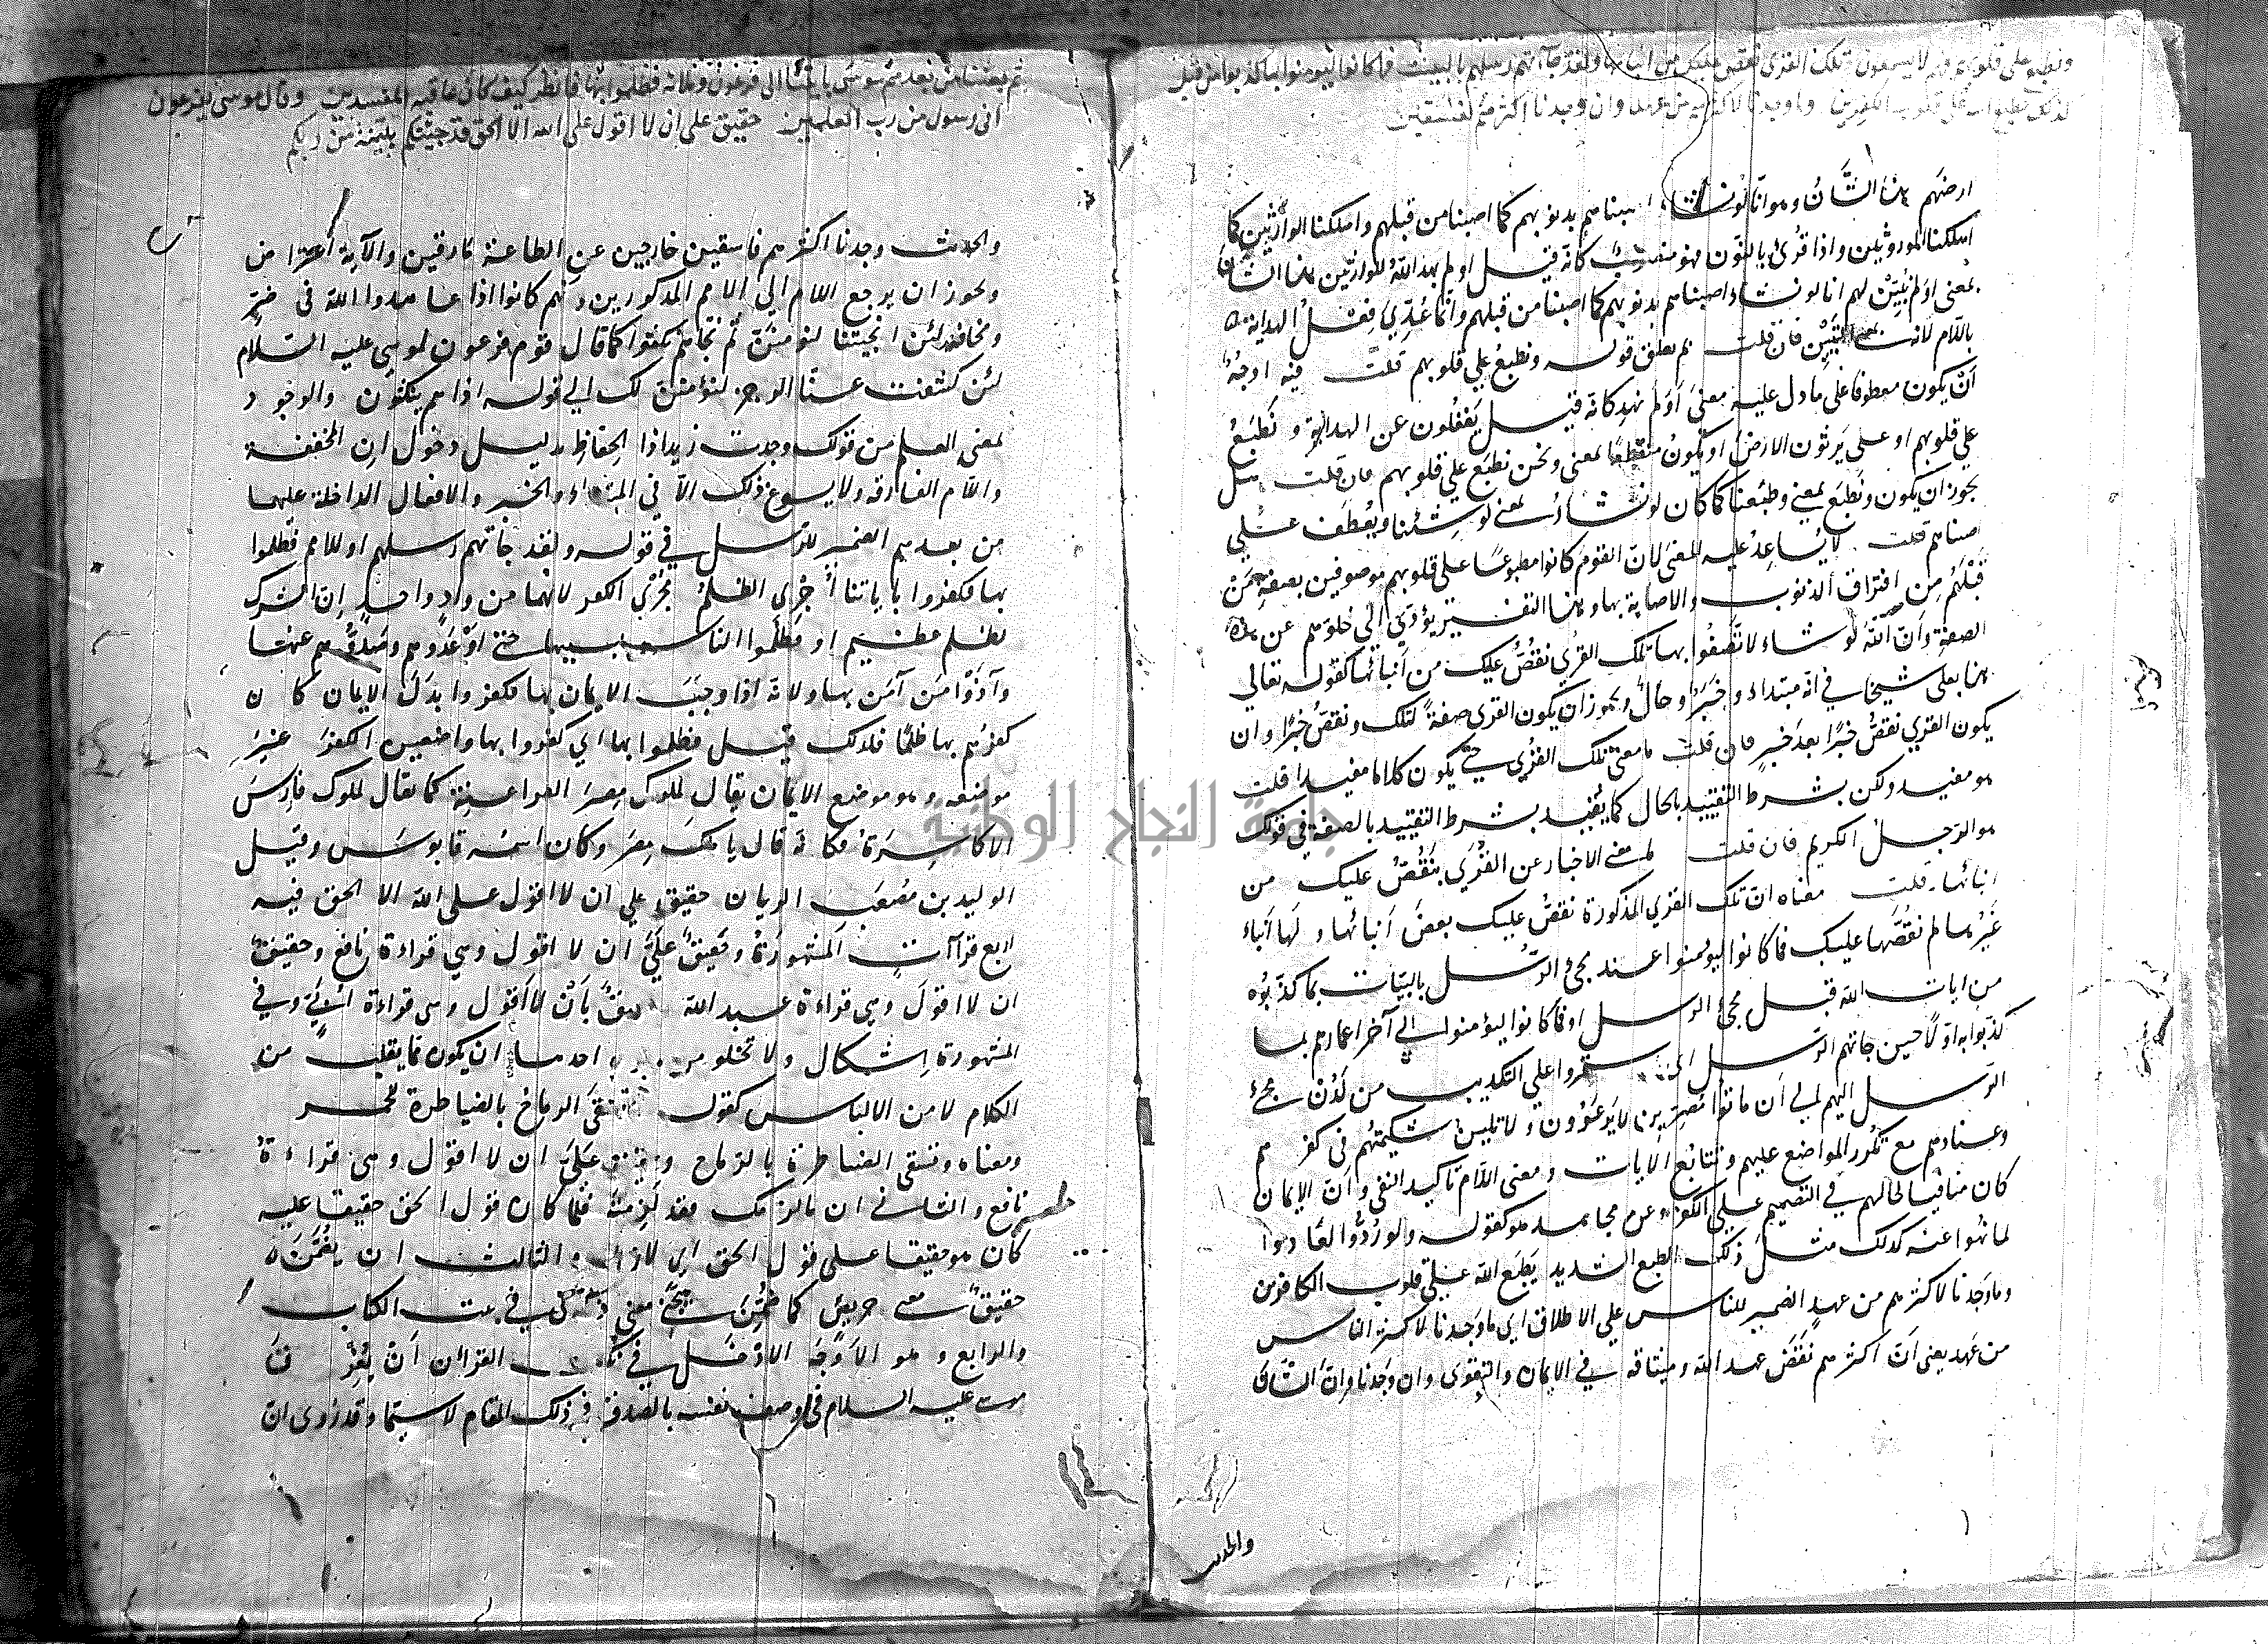 ونطبع على قلوبهم فهم لا يسمعون تلك القرى نقص عليك من انبائها ولقد جآءتهم رسلهم بالبينت فما كانوا ليومنوا بما كذبوا من قبل
كذلك يطبع الله على قلوب الكفرين وما وجدنا لاكثرهم من عهد وان وجدنا اكثرهم لفسقين
ارضهم هذا الشَّانُ وهو انّا لو نشاء اصبناهم بذنوبهم كما اصبنا من قبلهم واهلكنا الوارثين كما
اهلكنا الموروثين واذا قرئ بالنّون فهو منصوب كانّه قيل اولم يهد اللّه للوارثين هذا الشان
بمعنى اولم نبيّن لهم انا لو نشاء اصبناهم بذنوبهم كما اصبنا من قبلهم وانّما عُدِّي فعل الهداية
باللّام لانه بمعنى التبيين فان قلت بم يعلق قوله ونطبع علي قلوبهم قلت فيه اوجهٌ
اَنْ يكون معطوفا على ما دل عليه معنى اَوَلم نهد كانّه قيل يَغفُلون عن الهداية ونَطبَعُ
علي قلوبهم او على يَرثون الارض او يكون منقطعًا بمعنى ونحن نطبَع علي قلوبهم فان قلت هل
يجوز ان يكون ونَطبَع بمعني وطبَعنا كما كان لو نشاء بمعنى لو شئنا ويُعْطَف علي
اصبناهم قلت لا يُساعِدُ عليه المعنى لانّ القوم كانوا مطبوعًا على قلوبهم موصوفين بصفةِ مَن
قَبْلَهُم مِن اقتراف الذنوب والاصابة بها وهذا التفسير يؤدّي الي خلوّهم عن هذه
الصفةِ وأن اللّه لو شاء لاتّصفُوا بها تلك القري نقصُّ عليك من أنبائها كقوله تعالي
هذا بعلى شيخا في انّه مبتداء وخبرٌ وحالٌ ويجوز ان يكون القرى صفةً لتلك ونقصّ خبرًا وان
يكون القري نقصّ خبرًا بعدَ خبرٍ فان قلت ما معنى تلك القُري حتى يكون كلاما مفيدا قلت
هو مفيد ولكن بشرط التقييد بالحال كما يُفيد بشرط التقييد بالصفة في قولك
هو الرجل الكريم فان قلت ما معنى الاخبار عن القُري بنَقُصّ عليك من
انبائها قلت معناه انّ تلك القري المذكورة نقصّ عليك بعضَ اَنبائها ولها اَنباءٌ
غَيْرها لم نقُصَّها عليك فما كانوا ليؤمنوا عند مجئ الرُّسل بالبيّنات بما كذّبوُه
من ايات اللّه قبل مجئ الرسل او فما كانوا ليؤمنوا الي آخر اعمارهم بما
كذّبوا به اوّلًا حين جاتهم الرّسل اي استمروا علي التكذيب من لَدُنْ مجئ
الرّسل اليهم الي أن ماتوا مُصِرّين لا يَرعَوُون ولا تلين شكيمتُهم في كفرهم
وعنادهم مع تكرر المواضع عليهم وتتابُع الايات ومعنى اللّام تاكيد النفي وأنّ الايمان
كان منافيا لحالهم في التصميم على الكفر وعن مجاهد هو كقوله ولو رُدُّوا لعَادوا
لما نُهوا عنه كذلك مثل ذلك الطبع الشديد يَطبَع اللّه علي قلوب الكافرين
وما وَجدنا لاكثرهم من عهدٍ الضمير للناس علي الاطلاق اي ما وَجدنا لاكثر الناس
من عَهد يعنى اَنّ اكثرهم نَقَضَ عهد اللّه وميثاقه في الايمان والتقوى وان وَجدنا وانّ الشّانَ
والحديث
ثم بعثنا من بعدهم موسى باٰيٰتنا الى فرعون وملائه فظلموا بها فانظر كيف كان عاقبة المفسدين وقال موسى يفرعون
انى رسول من رب العلمين حقيق على ان لا اقول على الله الا الحق قد جئتكم ببينة من ربكم
والحديث وجدنا اكثرهم فاسقين خارجين عن الطاعة مارقين والآية اعتراض
ويجوز ان يرجع اللام الي الامم المذكورين وانهم كانوا اذا عاهدوا اللّه في ضرٍّ
ومخافة لئن انجيتنا لنومننّ ثم نجّاهم نكثوا كما قال قوم فرعون لموسى عليه السّلام
لئن كشفت عنّا الرجز لنؤمننّ لك الي قوله اذا هم ينكثون والوجود
بمعنى العلم من قولك وجدت زيدا ذا الحِفاظ بدليل دخول اِن المخففة
واللّام الفارقه ولا يسوغ ذلك الّا في المبتداء والخبر والافعال الداخلة عليهما
من بعدهم الضمير للرّسل في قوله ولقد جاتهم رسلهم او للامم فظلموا
بها فكفروا باياتنا اُجْري الظلمُ مُجْرَي الكفر لانّهما من وادٍ واحدٍ اِنّ الشرك
لظلم عظيم او فظَلَموا الناس بسببها حتى اَوْعَدُوهم وصَدُّوهم عنها
وآذَوْا مَن آمَن بها ولانه اذا وجَبَ الايمان بها فكفروا بدَلَ الايمان كان
كفرُهم بها ظلمًا فلذلك قيل فظلموا بها اي كفروا بها واضعين الكفر غيرَ
موضعه وهو موضع الايمان يقال لملوك مِصرَ الفراعنة كما يقال لملوك فارِسَ
الاكاسِرَةُ فكانه قال يا ملك مصرَ وكان اسمُه قابوسَ وقيل
الوليد بن مُصعَب الريان حقيق علي ان لا اقول على اللّه الا الحق فيه
اربع قراآت المشهورَةُ وحقيقٌ عليَّ ان لا اقول وهي قراءة نافع وحقيقٌ
ان لا اقولَ وهي قراءة عبد اللّه وحقيقٌ بأنْ لا اَقول وهى قراءة اُبَيٍّ وفي
المشهورة اِشكال ولا تخلو من احدها ان يكون ممّا يقلب من
الكلام لامن الالباس كقوله وتشقى الرماح بالضياطرة الحمر
ومعناه وتشقى الضياطرة بالرماح وحقيق عَليَّ ان لا اقول وهى قراءةُ
نافع والثاني ان ما لزمك فقد لَزِمتَهُ فلمّا كان قول الحق حقيقا عليه
كان هو حقيقا على قول الحق اي لازما والثالث ان يضمَّنَ
حقيقٌ معنى حريصٌ كما ضُمِّنَ هيّجني معنى ذكّرني في بيت الكتاب
والرابع وهو الاَوجَه الاَدْخَل في نُكَت القرآن اَنْ يُغْرِقَ
موسى عليه السلام في وصف نفسه بالصّدق في ذلك المقام لا سيّما وقد رُوى انّ
جامعة النجاح الوطنية